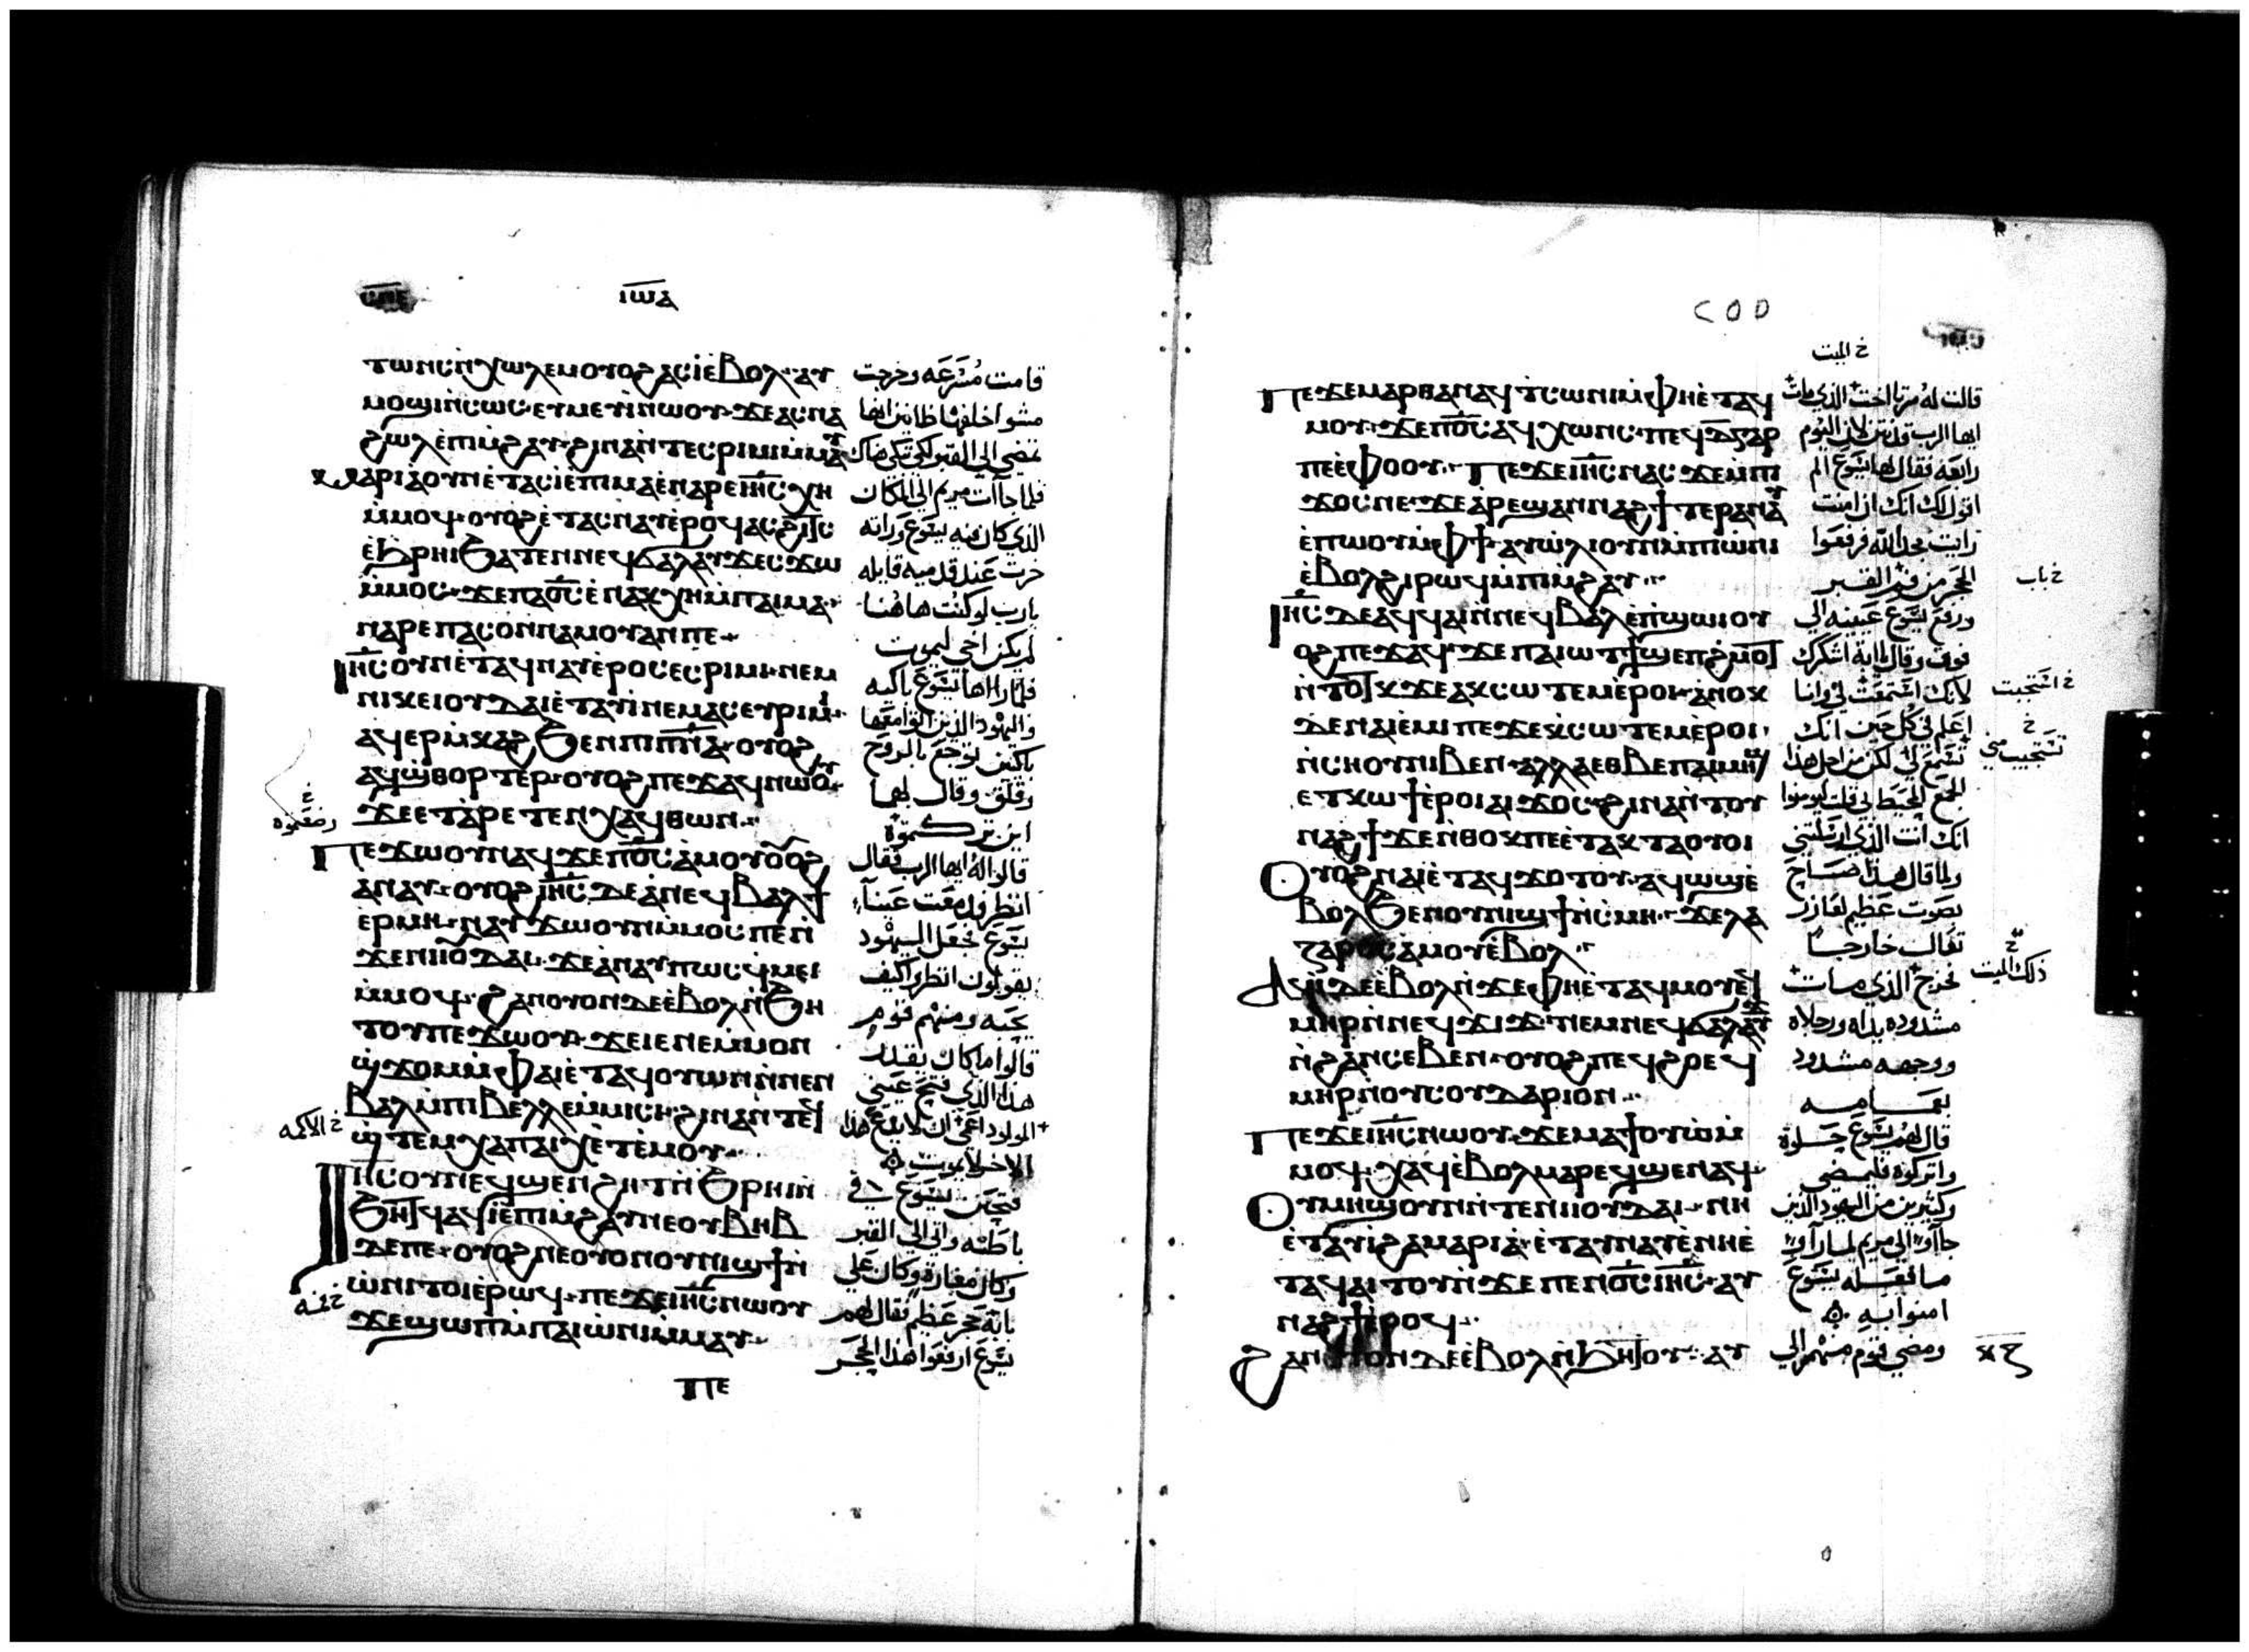 ⲓⲱⲁ
ⲧⲱⲛⲥ ⲛ̀ⲭⲱⲗⲉⲙ ⲟⲩⲟϩ ⲁⲥⲓ̀ ⲉ̀ⲃⲟⲗ · ⲁⲩ قامت مُسْرَعَه وخرجت
ⲙⲟϣⲓ ⲛ̀ⲥⲱⲥ · ⲉⲩⲙⲉⲩⲓ̀ ⲛⲱⲟⲩ · ϫⲉ ⲁⲥⲛⲁ مشوا خلفها ظانين انها
ϩⲱⲗ ⲉ̀ⲡⲓⲙ̀ϩⲁⲩ · ϩⲓⲛⲁ ⲛ̀ⲧⲉⲥⲣⲓⲙⲓ ⲙ̀ⲙⲁⲩ تمضي الى القبر لكي تبكي هناك
ⲙⲁⲣⲓⲁ ⲟⲩⲛ ⲉ̀ⲧⲁⲥⲓ̀ ⲉ̀ⲡⲓⲙⲁ ⲉ̀ⲛⲁⲣⲉ ⲓⲏ̅ⲥ̅ ⲭⲏ فلما جاآت مريم الى المكان
ⲙ̀ⲙⲟϥ · ⲟⲩⲟϩ ⲉ̀ⲧⲁⲥⲛⲁⲩ ⲉ̀ⲣⲟϥ ⲁⲥϩⲓⲧⲥ الذي كان فيه يسوع وراته
ⲉ̀ϧⲣⲏⲓ ϧⲁⲧⲉⲛ ⲛⲉϥϭⲁⲗⲁⲩϫ ⲉⲥϫⲱ خرت عند قدميه قايله
ⲙ̀ⲙⲟⲥ · ϫⲉ ⲡⲁⲟ̅ⲥ̅ ⲉ̀ⲛⲁⲕⲭⲏ ⲙ̀ⲡⲁⲓⲙⲁ · يارب لو كنت هاهُنا
ⲛⲁⲣⲉ ⲡⲁⲥⲟⲛ ⲛⲁⲙⲟⲩ ⲁⲛ ⲡⲉ لم يكن اخي ليموت
ⲓⲏ̅ⲥ̅ ⲟⲩⲛ ⲉ̀ⲧⲁϥⲛⲁⲩ ⲉ̀ⲣⲟⲥ ⲉⲥⲣⲓⲙⲓ · ⲛⲉⲙ فلما راها يسوع باكيه
ⲛⲓⲕⲉⲓⲟⲩⲇⲁⲓ ⲉ̀ⲧⲁⲩⲓ̀ ⲛⲉⲙⲁⲥ ⲉⲩⲣⲓⲙⲓ · واليهود الذين اتوا معها
ⲁϥⲉⲣⲙ̀ⲕⲁϩ ϧⲉⲛ ⲡⲓⲡ̅ⲛ̅ⲁ̅ · ⲟⲩⲟϩ باكين توجع بالروح
ⲁϥϣ̀ⲑⲟⲣⲧⲉⲣ · ⲟⲩⲟϩ ⲡⲉϫⲁϥ ⲛⲱⲟⲩ وقلق وقال لهما
ϫⲉ ⲉⲧⲁ̀ⲣⲉⲧⲉⲛⲭⲁϥ ⲑⲱⲛ · اين تركتموه
خ وضعتموه
ⲡⲉϫⲱⲟⲩ ⲛⲁϥ ϫⲉ ⲡⲟ̅ⲥ̅ ⲁ̀ⲙⲟⲩ ⲟⲩⲟϩ قالوا له ايها الرب تعال
ⲁⲛⲁⲩ · ⲟⲩⲟϩ ⲓⲏ̅ⲥ̅ ⲇⲉ ⲁ̀ ⲛⲉϥⲃⲁⲗ ϯ انظر ودمعت عينآ
ⲉⲣⲙⲏ · ⲛⲁⲩϫⲱ ⲟⲩⲛ ⲙ̀ⲙⲟⲥ ⲡⲉ ⲛ̀ يسوع فجعل اليهود
ϫⲉ ⲛⲓⲓⲟⲩⲇⲁⲓ · ϫⲉ ⲁⲛⲁⲩ ⲡⲱⲥ ϥ̀ⲙⲉⲓ يقولون انظروا كيف
ⲙ̀ⲙⲟϥ · ϩⲁⲛⲟⲩⲟⲛ ⲇⲉ ⲉ̀ⲃⲟⲗ ⲛ̀ϧⲏ يحبه ومنهم قوم
ⲧⲟⲩ ⲡⲉϫⲱⲟⲩ · ϫⲉ ⲓⲉ ⲛⲉ ⲙ̀ⲙⲟⲛ قالوا ما كان يقدر
ϣ̀ϫⲟⲙ ⲙ̀ⲫⲁⲓ ⲉ̀ⲧⲁϥⲟⲩⲱⲛ ⲛ̀ⲛⲉⲛ هذا الذي فتح عيني
ⲃⲁⲗ ⲙ̀ⲡⲓⲃⲉⲗⲗⲉ ⲙ̀ⲙⲓⲥⲓ · ϩⲓⲛⲁ ⲛ̀ⲧⲉϥ المولود اعمى ان لا يدع هذا
خ الاكمه
ϣ̀ⲧⲉⲙⲭⲁ ⲡⲁⲓⲭⲉⲧ ⲉ̀ⲙⲟⲩ · الاخر لا يموت
ⲓⲏⲥ ⲟⲩⲛ ⲉϥϣⲉⲛϩⲏⲧ ⲛ̀ϧⲣⲏⲓ ⲛ̀ فتحنن يسوع في
ϧⲏⲧϥ ⲁϥⲓ̀ ⲉ̀ⲡⲓⲙ̀ϩⲁⲩ ⲛⲉ ⲟⲩⲃⲏⲃ باطنه واتى الى القبر
ⲇⲉ ⲡⲉ · ⲟⲩⲟϩ ⲛⲉ ⲟⲩⲟⲛ ⲟⲩⲛⲓϣϯ ⲛ̀ وكان مغارة وكان على
ⲱ̀ⲛⲓ ⲧⲟⲓ ⲉ̀ⲣⲱϥ · ⲡⲉϫⲉ ⲓⲏ̅ⲥ̅ ⲛⲱⲟⲩ بابه حجر عظيم فقال لهم
ϫⲉ ϣⲱⲡ ⲙ̀ⲡⲁⲓⲱ̀ⲛⲓ ⲙ̀ⲙⲁⲩ · يسوع ارفعوا هذا الحجر
ⲡⲉ
COD
خ الميت
ⲡⲉϫⲉ ⲙⲁⲣⲑⲁ ⲛⲁϥ ⲧ̀ⲥⲱⲛⲓ ⲙ̀ⲫⲏ ⲉ̀ⲧⲁϥ قالت له مرتا اخت الذي مات
ⲙⲟⲩ · ϫⲉ ⲡⲟ̅ⲥ̅ ⲁϥⲭⲱⲛⲥ · ⲡⲉϥⲇ̅ ⲅⲁⲣ ايها الرب قد نتن لان اليوم
ⲡⲉ ⲉ̀ϥⲟⲟⲩ · ⲡⲉϫⲉ ⲓⲏ̅ⲥ̅ ⲛⲁⲥ ϫⲉ ⲙ̀ⲡⲓ رابعه فقال لها يسوع الم
ϫⲟⲥ ⲛⲉ · ϫⲉ ⲁ̀ⲣⲉϣⲁⲛⲛⲁϩϯ ⲧⲉⲣⲁⲛⲁⲩ اقول لك انك ان امنت
ⲉ̀ⲡⲱⲟⲩ ⲙ̀ⲫϯ · ⲁⲩⲱ̀ⲗⲓ ⲟⲩⲛ ⲙ̀ⲡⲓⲱ̀ⲛⲓ رايت مجد الله فرفعوا
ⲉ̀ⲃⲟⲗ ϩⲓⲣⲱϥ ⲙ̀ⲡⲓⲙ̀ϩⲁⲩ · الحجر من فم القبر
خ باب
ⲓⲏ̅ⲥ̅ ⲇⲉ ⲁϥϥⲁⲓ ⲛ̀ⲛⲉϥⲃⲁⲗ ⲉ̀ⲡϣⲱⲓ ⲟⲩ ورفع يسوع عينيه الى
ⲟϩ ⲡⲉϫⲁϥ · ϫⲉ ⲡⲁⲓⲱⲧ ϯϣⲉⲡϩ̀ⲙⲟⲧ فوق وقال ياابة اشكرك
ⲛ̀ⲧⲟⲧⲕ ϫⲉ ⲁⲕⲥⲱⲧⲉⲙ ⲉ̀ⲣⲟⲓ · ⲁ̀ⲛⲟⲕ لانك استمعت لي وانا
خ استجبت
ⲇⲉ ⲛⲁⲓⲉ̀ⲙⲓ ⲡⲉ ϫⲉ ⲕ̀ⲥⲱⲧⲉⲙ ⲉ̀ⲣⲟⲓ · اعلم في كل حين انك
خ
ⲛ̀ⲥⲏⲟⲩ ⲛⲓⲃⲉⲛ · ⲁⲗⲗⲁ ⲉⲑⲃⲉ ⲡⲁⲓⲙⲏϣ تسمع لي لكن من اجل هذا
تستجيب مني
ⲉⲧⲕⲱϯ ⲉ̀ⲣⲟⲓ ⲁⲓϫⲟⲥ · ϩⲓⲛⲁ ⲛ̀ⲧⲟⲩ الجمع المحيط بي قلت ليومنوا
ⲛⲁϩϯ ϫⲉ ⲛ̀ⲑⲟⲕ ⲡⲉ ⲉ̀ⲧⲁⲕⲧⲁⲟⲩⲟⲓ انك انت الذي ارسلتني
ⲟⲩⲟϩ ⲛⲁⲓ ⲉ̀ⲧⲁϥϫⲟⲧⲟⲩ · ⲁϥⲱϣ ⲉ̀ ولما قال هذا صاح
ⲃⲟⲗ ϧⲉⲛ ⲟⲩⲛⲓϣϯ ⲛ̀ⲥ̀ⲙⲏ · ϫⲉ ⲗⲁ بصوت عظيم لعازر
ⲍⲁⲣⲟⲥ ⲁⲙⲟⲩ ⲉ̀ⲃⲟⲗ · تعال خارجا
ⲁϥⲓ̀ ⲇⲉ ⲉ̀ⲃⲟⲗ ⲛ̀ϫⲉ ⲫⲏ ⲉ̀ⲧⲁϥⲙⲟⲩ ⲉϥ فخرج الذي مات
ذلك الميت
ⲙⲏⲣ ⲛ̀ⲛⲉϥϫⲓϫ · ⲛⲉⲙ ⲛⲉϥϭⲁⲗⲁⲩϫ مشدوده يداه ورجلاه
ⲛ̀ϩⲁⲛⲥⲉⲃⲉⲛ · ⲟⲩⲟϩ ⲡⲉϥϩⲣⲉϥ ووجهه مشدود
ⲙⲏⲣ ⲛ̀ⲟⲩⲥⲟⲩⲇⲁⲣⲓⲟⲛ · بعمامه
ⲡⲉϫⲉ ⲓⲏ̅ⲥ̅ ⲛⲱⲟⲩ · ϫⲉ ⲙⲁϯⲟⲩⲱ ⲙ̀ قال لهم يسوع حلوه
ⲙⲟϥ · ⲭⲁϥ ⲉ̀ⲃⲟⲗ ⲙⲁⲣⲉϥϣⲉⲛⲁϥ · واتركوه فليمضي
ⲟⲩⲙⲏϣ ⲟⲩⲛ ⲛ̀ⲧⲉ ⲛⲓⲓⲟⲩⲇⲁⲓ · ⲛⲏ وكثيرين من اليهود الذين
ⲉ̀ⲧⲁⲩⲓ̀ ϩⲁ ⲙⲁⲣⲓⲁ · ⲉ̀ⲧⲁⲩⲛⲁⲩ ⲉ̀ⲛⲏ ⲉ̀ جاآوا الى مريم لما راوا
ⲧⲁϥⲁⲓⲧⲟⲩ ⲛ̀ϫⲉ ⲡⲉⲛⲟ̅ⲥ̅ ⲓⲏ̅ⲥ̅ · ⲁⲩ ما فعله يسوع
ⲛⲁϩϯ ⲉ̀ⲣⲟϥ · امنوا به
ϩⲁⲛⲟⲩⲟⲛ ⲇⲉ ⲉ̀ⲃⲟⲗ ⲛ̀ϧⲏⲧⲟⲩ · ⲁⲩ ومضى قوم منهم الى